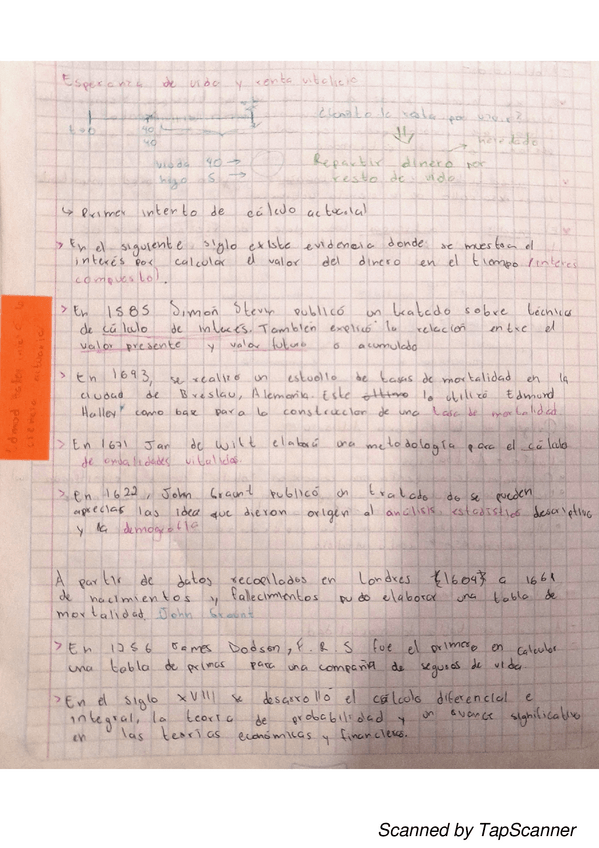 Esperanza de vida y renta vitalicia
t=0 40
40
Cuánto le resta por vivir?
heredado
viuda 40 →
hijo 5 →
Repartir dinero por
resto de vida
↳ Primer intento de cálculo actuarial
> En el siguiente siglo existe evidencia donde se muestra el
interés por calcular el valor del dinero en el tiempo (interés
compuesto).
> En 1585 Simon Stevin publicó un tratado sobre técnicas
de cálculo de interés. También explicó la relación entre el
valor presente y valor futuro o acumulado
> En 1693, se realizó un estudio de tasas de mortalidad en la
ciudad de Breslau, Alemania. Este lo utilizó Edmund
Halley como base para la construccion de una tasa de mortalidad
> En 1671 Jan de Wilt elaboró una metodología para el cálculo
de anualidades vitalicias.
> En 1622, John Graunt publicó un tratado do se pueden
apreciar las idea que dieron origen al análisis estadístico descriptivo
y la demografía
A partir de datos recopilados en Londres {1604} a 1661
de nacimientos y fallecimientos pudo elaborar una tabla de
mortalidad. John Graunt
> En 1756 James Dodson, F.R.S fue el primero en calcular
una tabla de primas para una compañía de seguros de vida.
> En el siglo XVIII se desarrolló el cálculo diferencial e
integral, la teoría de probabilidad y un avance significativo
en las teorías económicas y financieras.
ciencia actuarial
Scanned by TapScanner